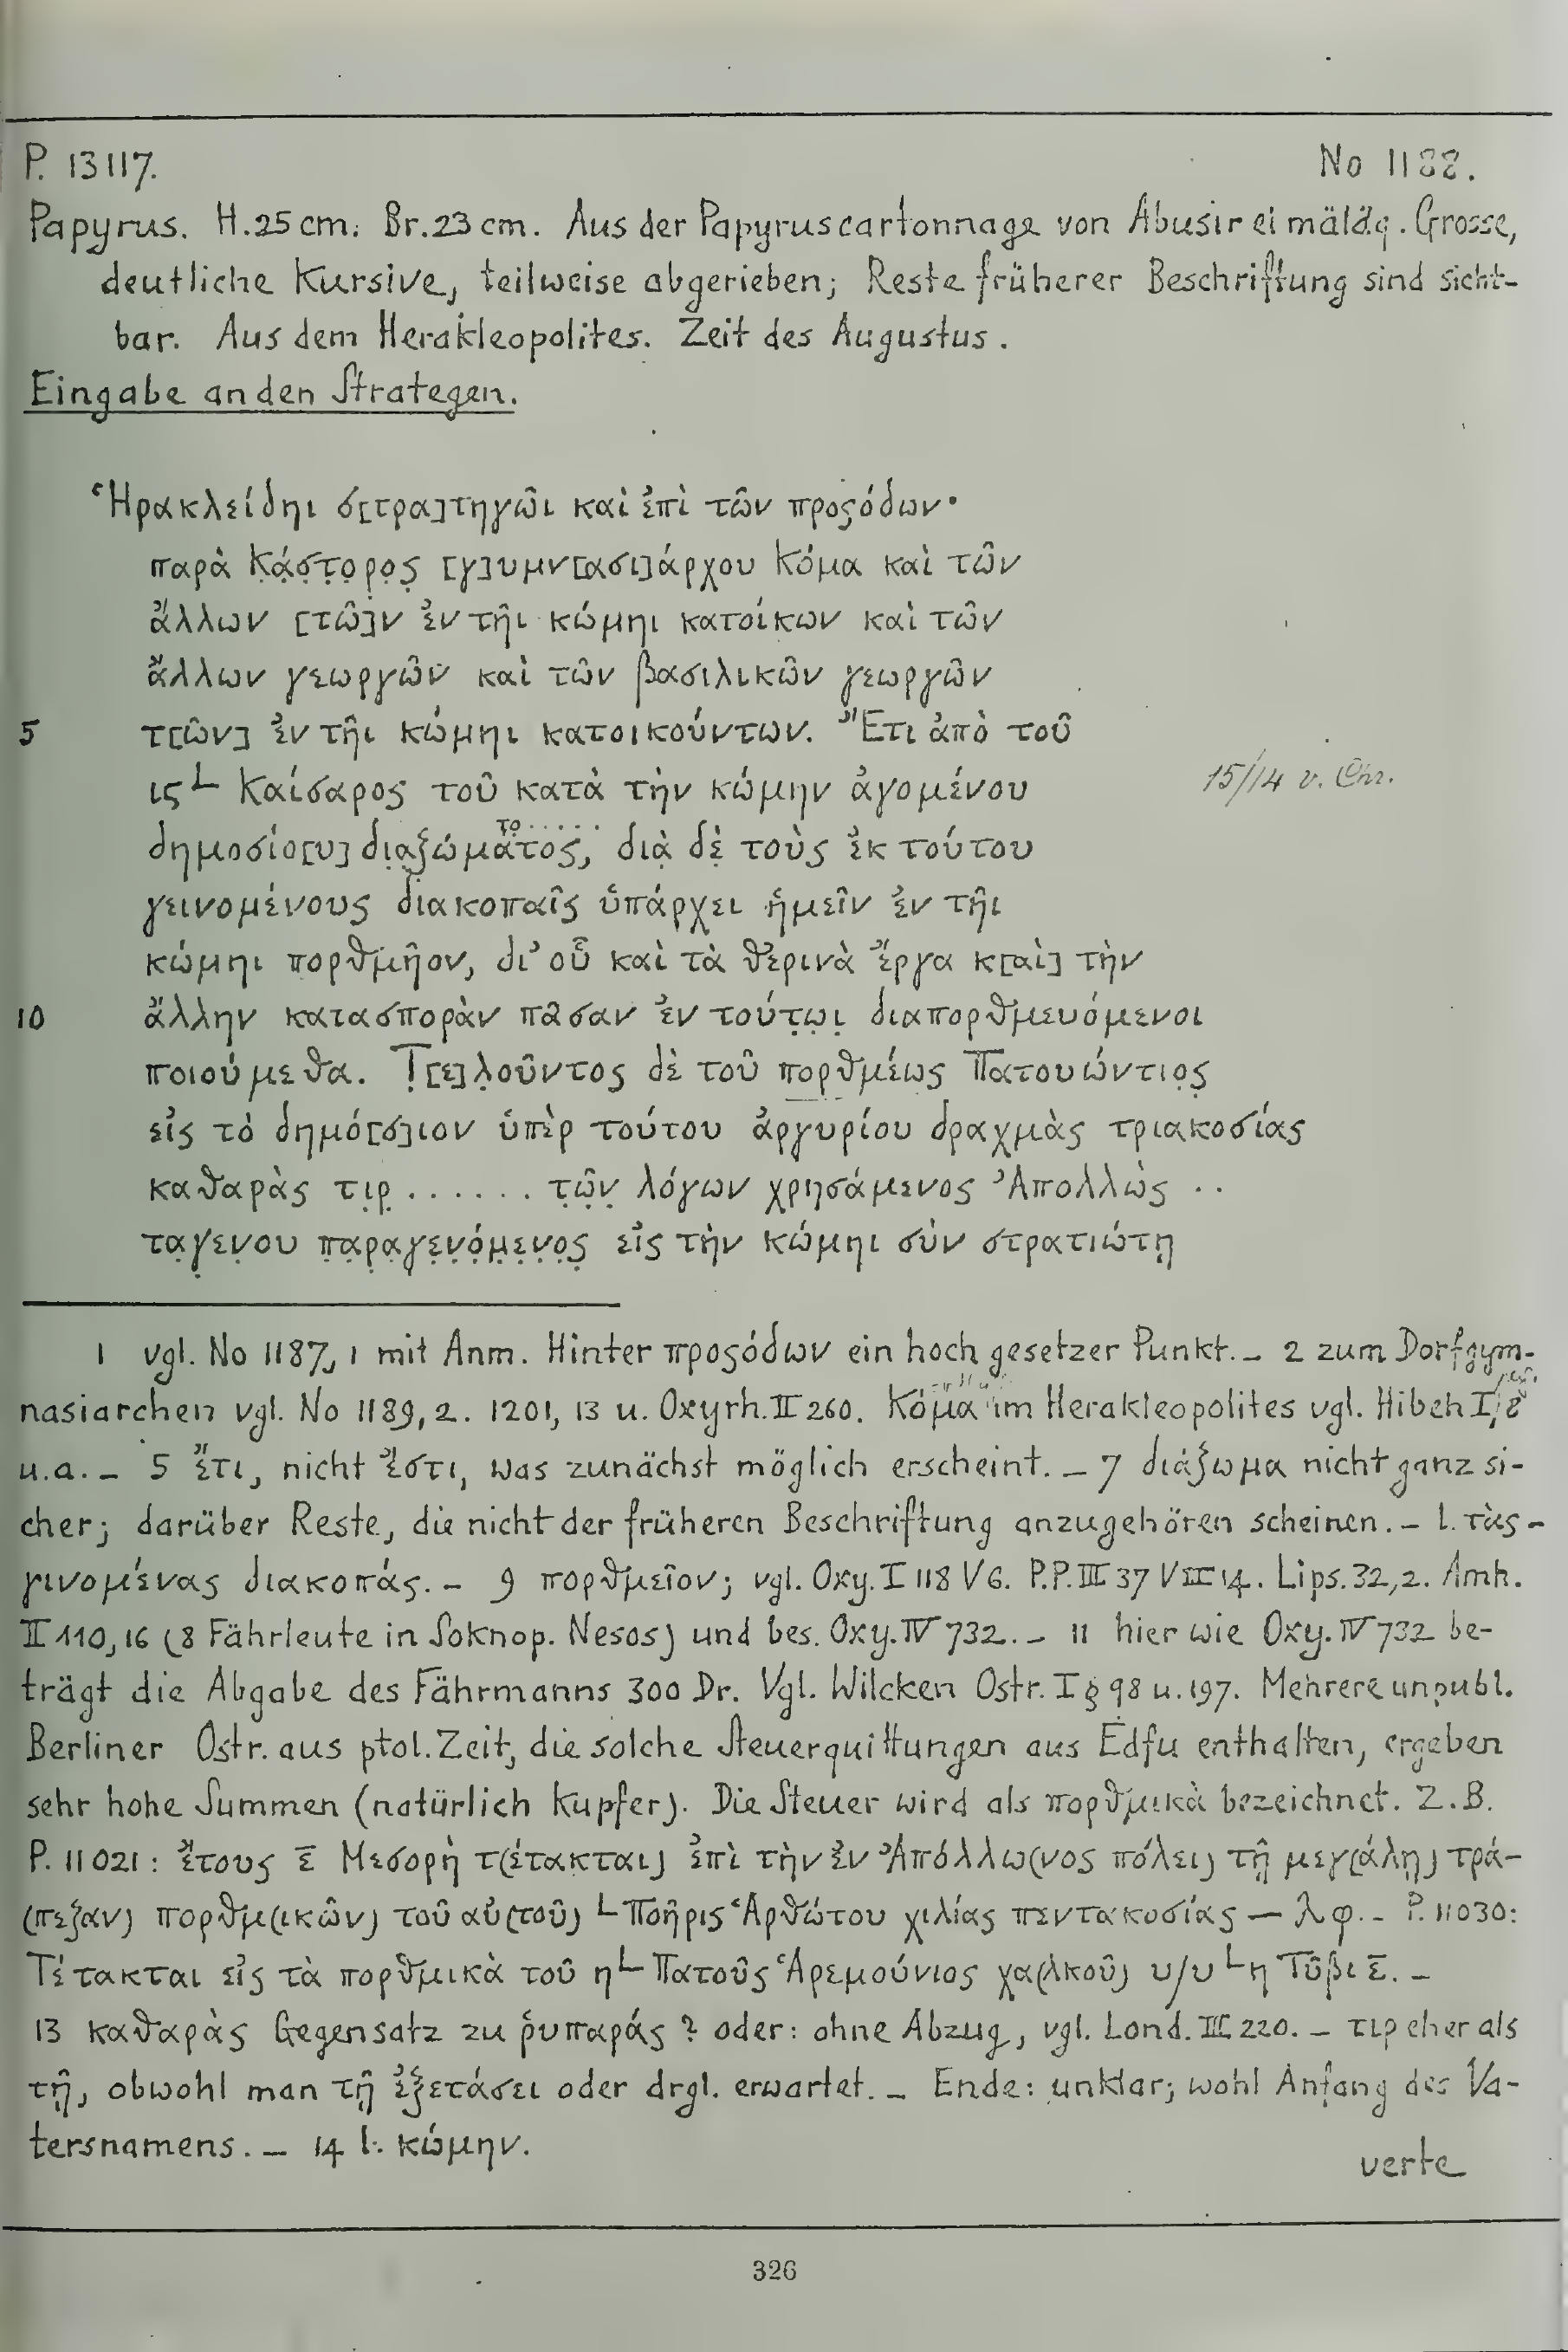 P. 13117.
No 1188.
Papyrus. H. 25 cm. Br. 23 cm. Aus der Papyruscartonnage von Abusir el mäläq. Grosse,
deutliche Kursive, teilweise abgerieben; Reste früherer Beschriftung sind sicht-
bar. Aus dem Herakleopolites. Zeit des Augustus.
Eingabe an den Strategen.
Ἡρακλείδηι σ[τρα]τηγῶι καὶ ἐπὶ τῶν προςόδων·
παρὰ Κ̣ά̣σ̣τ̣ο̣ρ̣ο̣ς̣ [γ]υμν[ασι]άρχου Κόμα καὶ τῶν
ἄλλων [τῶ]ν ἐν τῆι κώμηι κατοίκων καὶ τῶν
ἄλλων γεωργῶν καὶ τῶν βασιλικῶν γεωργῶν
5 τ[ῶν] ἐν τῆι κώμηι κατοικούντων. Ἔτι ἀπὸ τοῦ
ις L Καίσαρος τοῦ κατὰ τὴν κώμην ἀγομένου
15/14 v. Chr.
το̣ . . . . .
δημοσίο[υ] δι̣α̣ζώμα̣τος, διὰ̣ δὲ̣ τοὺς ἐκ τούτου
γεινομένους διακοπαῖς ὑπάρχει ἡμεῖν ἐν τῆι
κώμηι πορθμῆον, δι’ οὗ καὶ τὰ θερινὰ ἔργα κ[αὶ] τὴν
10 ἄλλην κατασπορὰν πᾶσαν ἐν τούτ̣ω̣ι̣ διαπορθμευόμενοι
ποιούμεθα. Τ̣[ε]λ̣οῦντος δὲ τοῦ πορθμέως Πατουώντιο̣ς̣
εἰς τὸ δημό[σ]ιον ὑπὲρ τούτου ἀργυρίου δραχμὰς τριακοσίας
καθαρὰς τι̣ρ̣ . . . . . . τ̣ῶ̣ν̣ λόγων χρησάμενος Ἀπολλὼς̣ . .
τα̣γε̣νου π̣α̣ρ̣α̣γ̣ε̣ν̣ό̣μ̣ε̣ν̣ο̣ς̣ εἰς τὴν κώμηι σὺν στρατιώτῃ
1 vgl. No 1187, 1 mit Anm. Hinter προςόδων ein hoch gesetzer Punkt. – 2 zum Dorfgym-
nasiarchen vgl. No 1189, 2. 1201, 13 u. Oxyrh. II 260. Κόμα im Herakleopolites vgl. Hibeh I, 8
u.a. – 5 ἔτι, nicht ἔστι, was zunächst möglich erscheint. – 7 διάζωμα nicht ganz si-
cher; darüber Reste, die nicht der früheren Beschriftung anzugehören scheinen. – l. τὰς –
γινομένας διακοπάς. – 9 πορθμεῖον; vgl. Oxy. I 118 V 6. P.P. III 37 V II 14. Lips. 32, 2. Amh.
II 110, 16 (8 Fährleute in Soknop. Nesos) und bes. Oxy. IV 732. – 11 hier wie Oxy. IV 732 be-
trägt die Abgabe des Fährmanns 300 Dr. Vgl. Wilcken Ostr. I § 98 u. 197. Mehrere unpubl.
Berliner Ostr. aus ptol. Zeit, die solche Steuerquittungen aus Edfu enthalten, ergeben
sehr hohe Summen (natürlich Kupfer). Die Steuer wird als πορθμικὰ bezeichnet. Z.B.
P. 11021: ἔτους ε̄ Μεσορὴ τ(έτακται) ἐπὶ τὴν ἐν Ἀπόλλω(νος πόλει) τῇ μεγ(άλῃ) τρά-
(πεζαν) πορθμ(ικῶν) τοῦ αὐ(τοῦ) L Ποῆρις Ἁρθώτου χιλίας πεντακοσίας — λφ. – P. 11030:
Τέτακται εἰς τὰ πορθμικὰ τοῦ η L Πατοῦς Ἁρεμούνιος χα(λκοῦ) υ/υ L η Τῦβι ε̄. –
13 καθαρὰς Gegensatz zu ῥυπαράς? oder: ohne Abzug, vgl. Lond. III 220. – τιρ eher als
τῇ, obwohl man τῇ ἐξετάσει oder drgl. erwartet. – Ende: unklar; wohl Anfang des Va-
tersnamens. – 14 l. κώμην.
verte
326